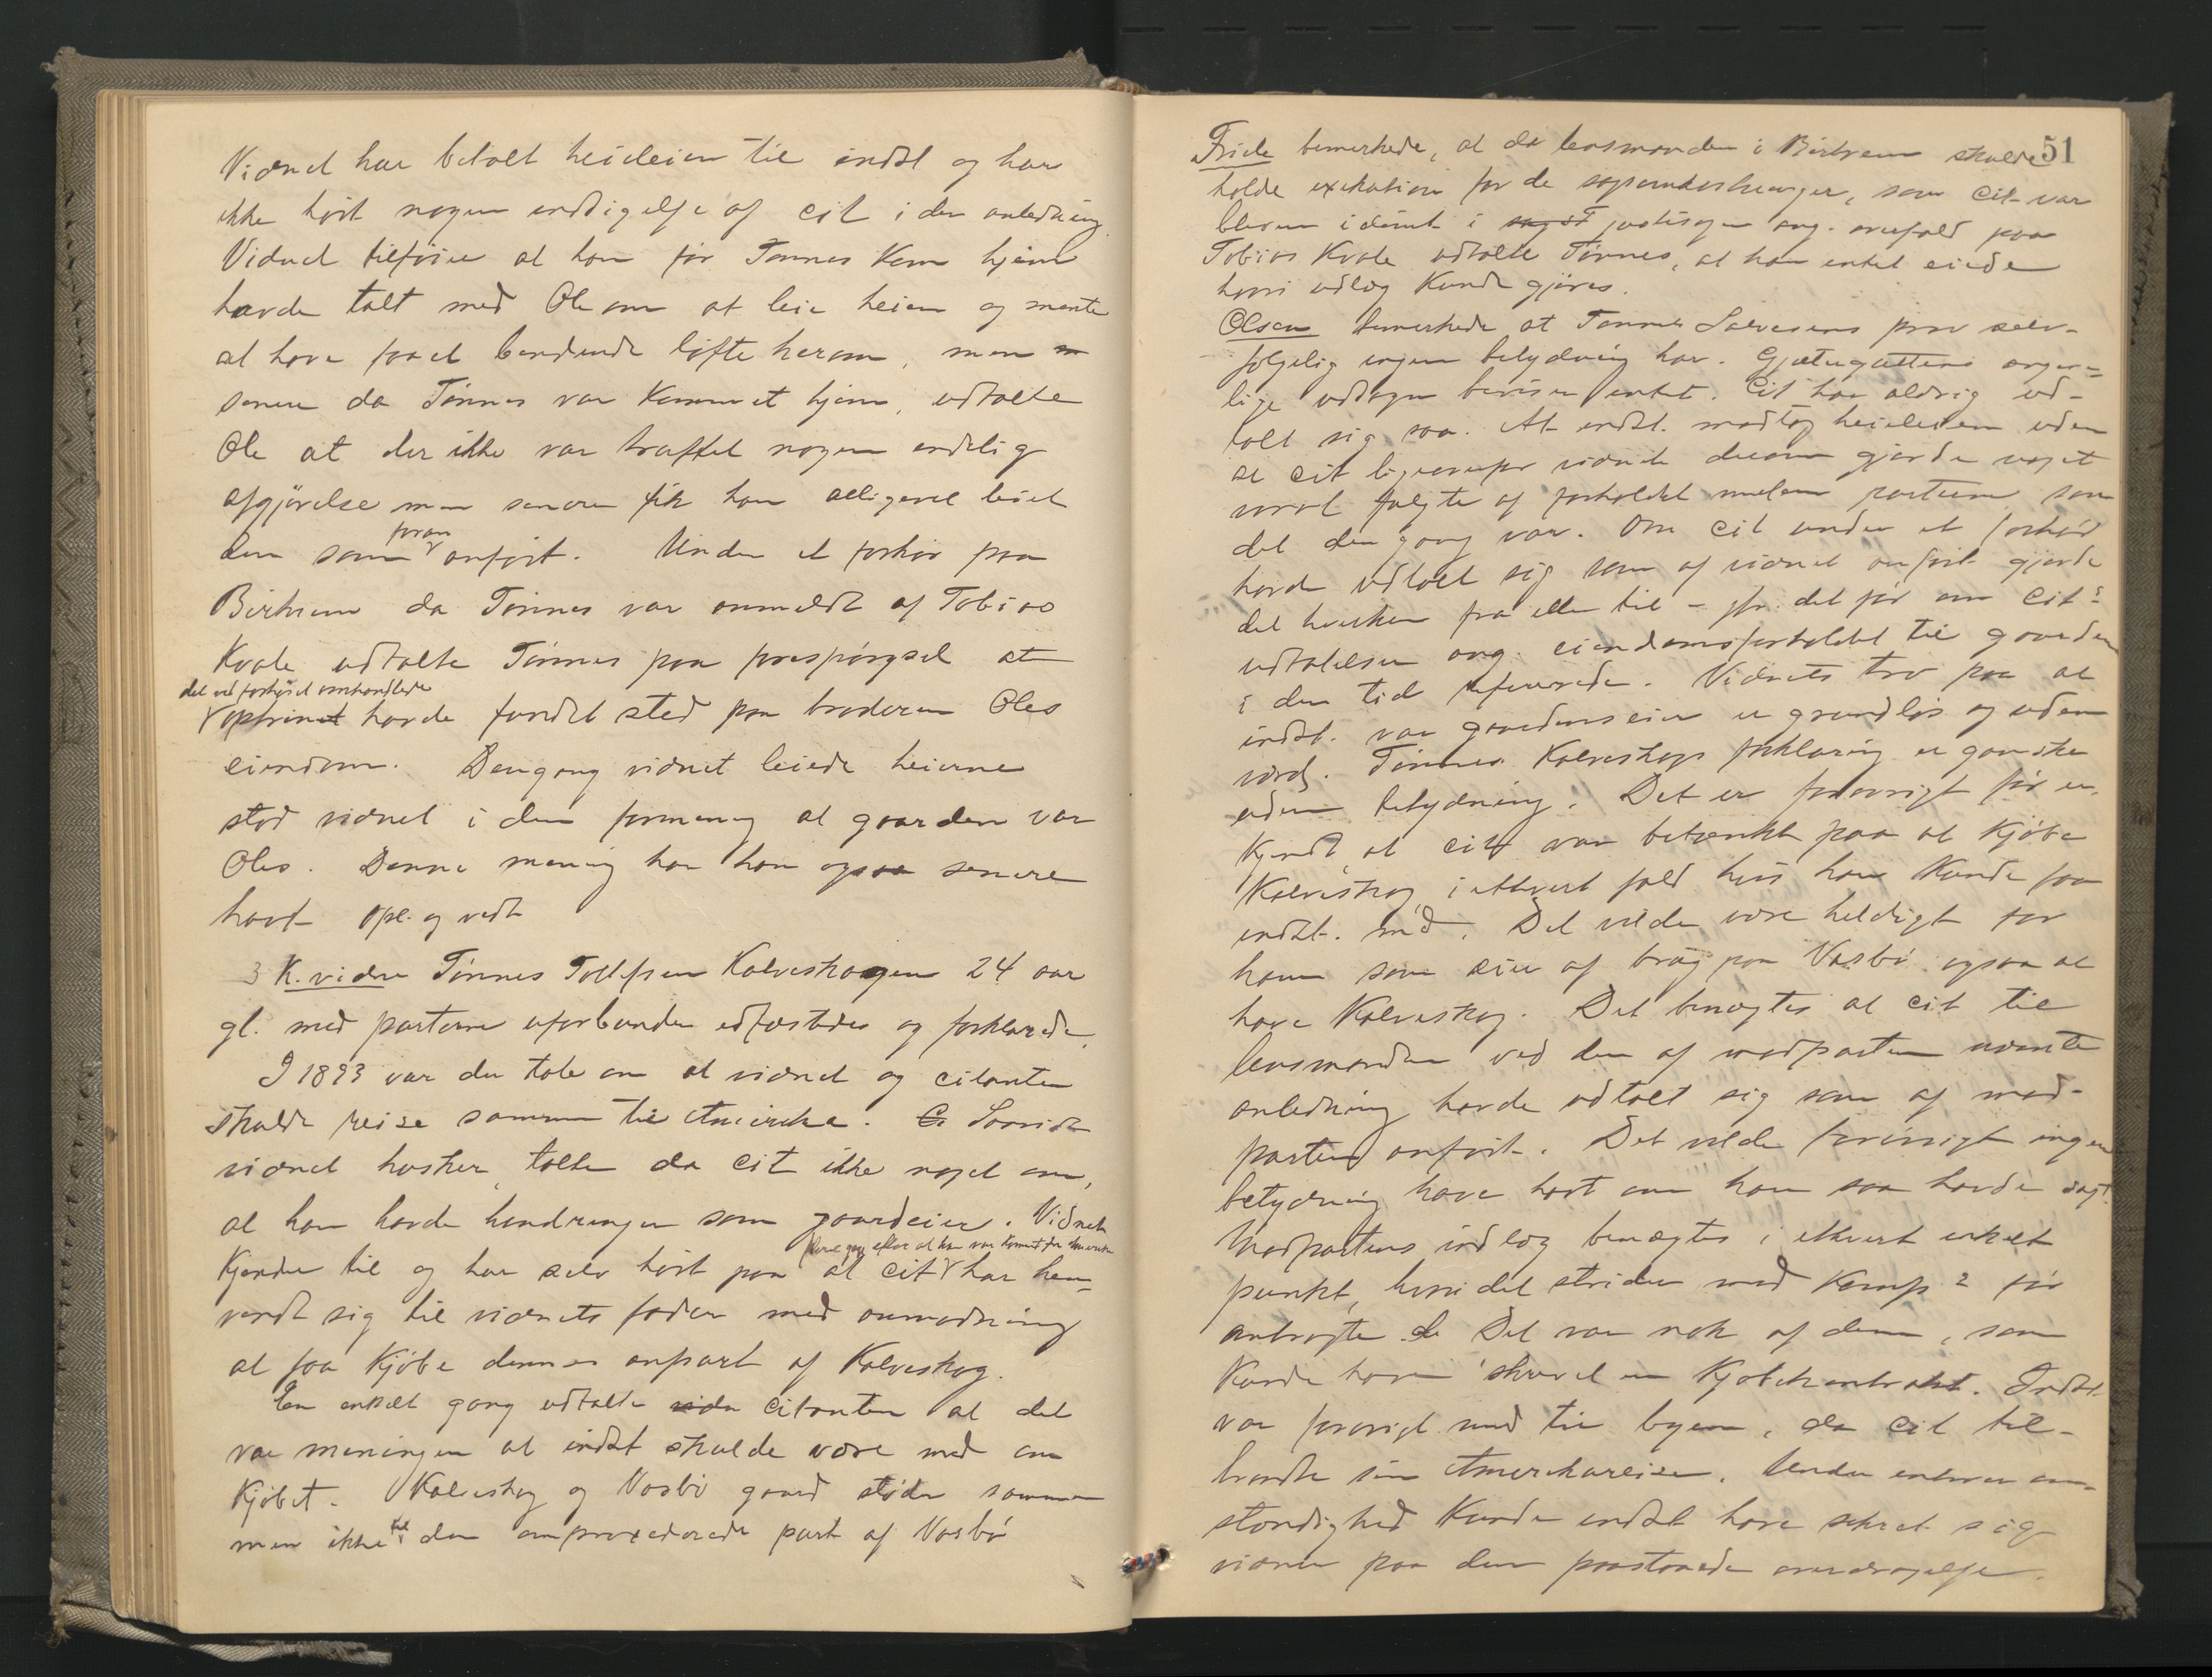 Vidnet har betalt heieleien til indst og har
ikke hørt nogen indsigelse af cit i den anledning.
Vidnet tilføier at han før Tønnes kom hjem
havde talt med Ole om at leie heien og mente
at have faaet bindende løfte herom, men
senere da Tønnes var kommet hjem, udtalte
Ole at der ikke var truffet nogen endelig
afgjørelse men senere fik han alligevel leiet
den som foran anført. Under et forhør paa
Birkrem da Tønnes var anmeldt af Tobias
Kvale udtalte Tønnes paa forespørgsel at
det ved forhøret omhandlede
optrinet havde fundet sted paa broderen Oles
eiendom. Dengang vidnet leiede heierne
stod vidnet i den formening at gaarden var
Oles. Denne mening har han ogsaa senere
havt opl. og vedt
3 K. vidne Tønnes Tollefsen Kalveskogen 24 aar
gl. med parterne uforbunden edfæstedes og forklarede.
I 1893 var der tale om at vidnet og citanten
skulde reise sammen til Amerika. Saavidt
vidnet husker, talte da cit ikke noget om,
at han havde hindringer som gaardeier. Vidnet
flere gang efter at han var kommet fra Amerika
kjender til og har selv hørt paa at cit har hen-
vendt sig til vidnets fader med anmodning
at faa kjøbe dennes anpart af Kalveskog.
En enkelt gang udtalte citanten at det
var meningen at indst skulde være med om
kjøbet. Kalveskog og Vasbø gaard støder sammen
men ikke til den omprocederede part af Vasbø
51
Friele bemerkede, at da lensmanden i Birkrem skulde
holde exekution for de sagsomkostninger, som cit var
bleven idømt i justisagen ang. overfald paa
Tobias Kvale udtalte Tønnes, at han intet eiede
hvori udlæg kunde gjøres.
Olsen bemerkede at Tønnes Salvesens prov selv-
følgelig ingen betydning har. Gjætergutten
lige udsagn beviser intet. Cit har aldrig ud-
talt sig saa. At indst. modtog heieleien uden
at cit ligeoverfor vidnet derom gjorde noget
fulgte af forholdet mellem parterne som
det den gang var. Om cit under et forhør
havde udtalt sig som af vidnet anført gjorde
det hverken fra eller til – jfr. det før om cits
udtalelser ang. eiendomsforholdet til gaarden
i den tid refererede. Vidnets tro paa at
indst. var gaardens eier er grundløs og uden
værd. Tønnes Kalveskogs forklaring er ganske
uden betydning. Det er forøvrigt før er-
kjendt at cit var betænkt paa at kjøbe
Kalveskog, i ethvert fald hvis han kunde faa
indst. med. Det vilde være heldigt for
ham som eier af brug paa Vasbø ogsaa at
have Kalveskog. Det benegtes at cit til
lensmanden ved den af modparten nævnte
anledning havde udtalt sig som af mod-
parten anført. Det vilde forøvrigt ingen
betydning have havt om han saa havde sagt.
Modpartens indlæg benegtes i ethvert enkelt
punkt, hvori det strider med komp s før
anbragte. Det var nok af dem, som
kunde have skrevet en kjøbekontrakt. Indst.
var forøvrigt med til byen, da cit til-
traadte sin Amerikareise. Under enhver om-
stændighed kunde indst have sikret sig
vidner paa den paastaaede overdragelse.